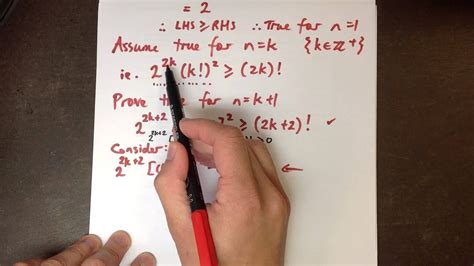 = 2
∴ LHS ≥ RHS ∴ True for n=1
Assume true for n=k {k∈ℤ⁺}
ie. 2²ᵏ (k!)² ≥ (2k)!
Prove true for n=k+1
2²ᵏ⁺² )!]² ≥ (2k+2)! ✓
2²ᵏ⁺² ≥0
Consider:
2²ᵏ⁺² [ ←